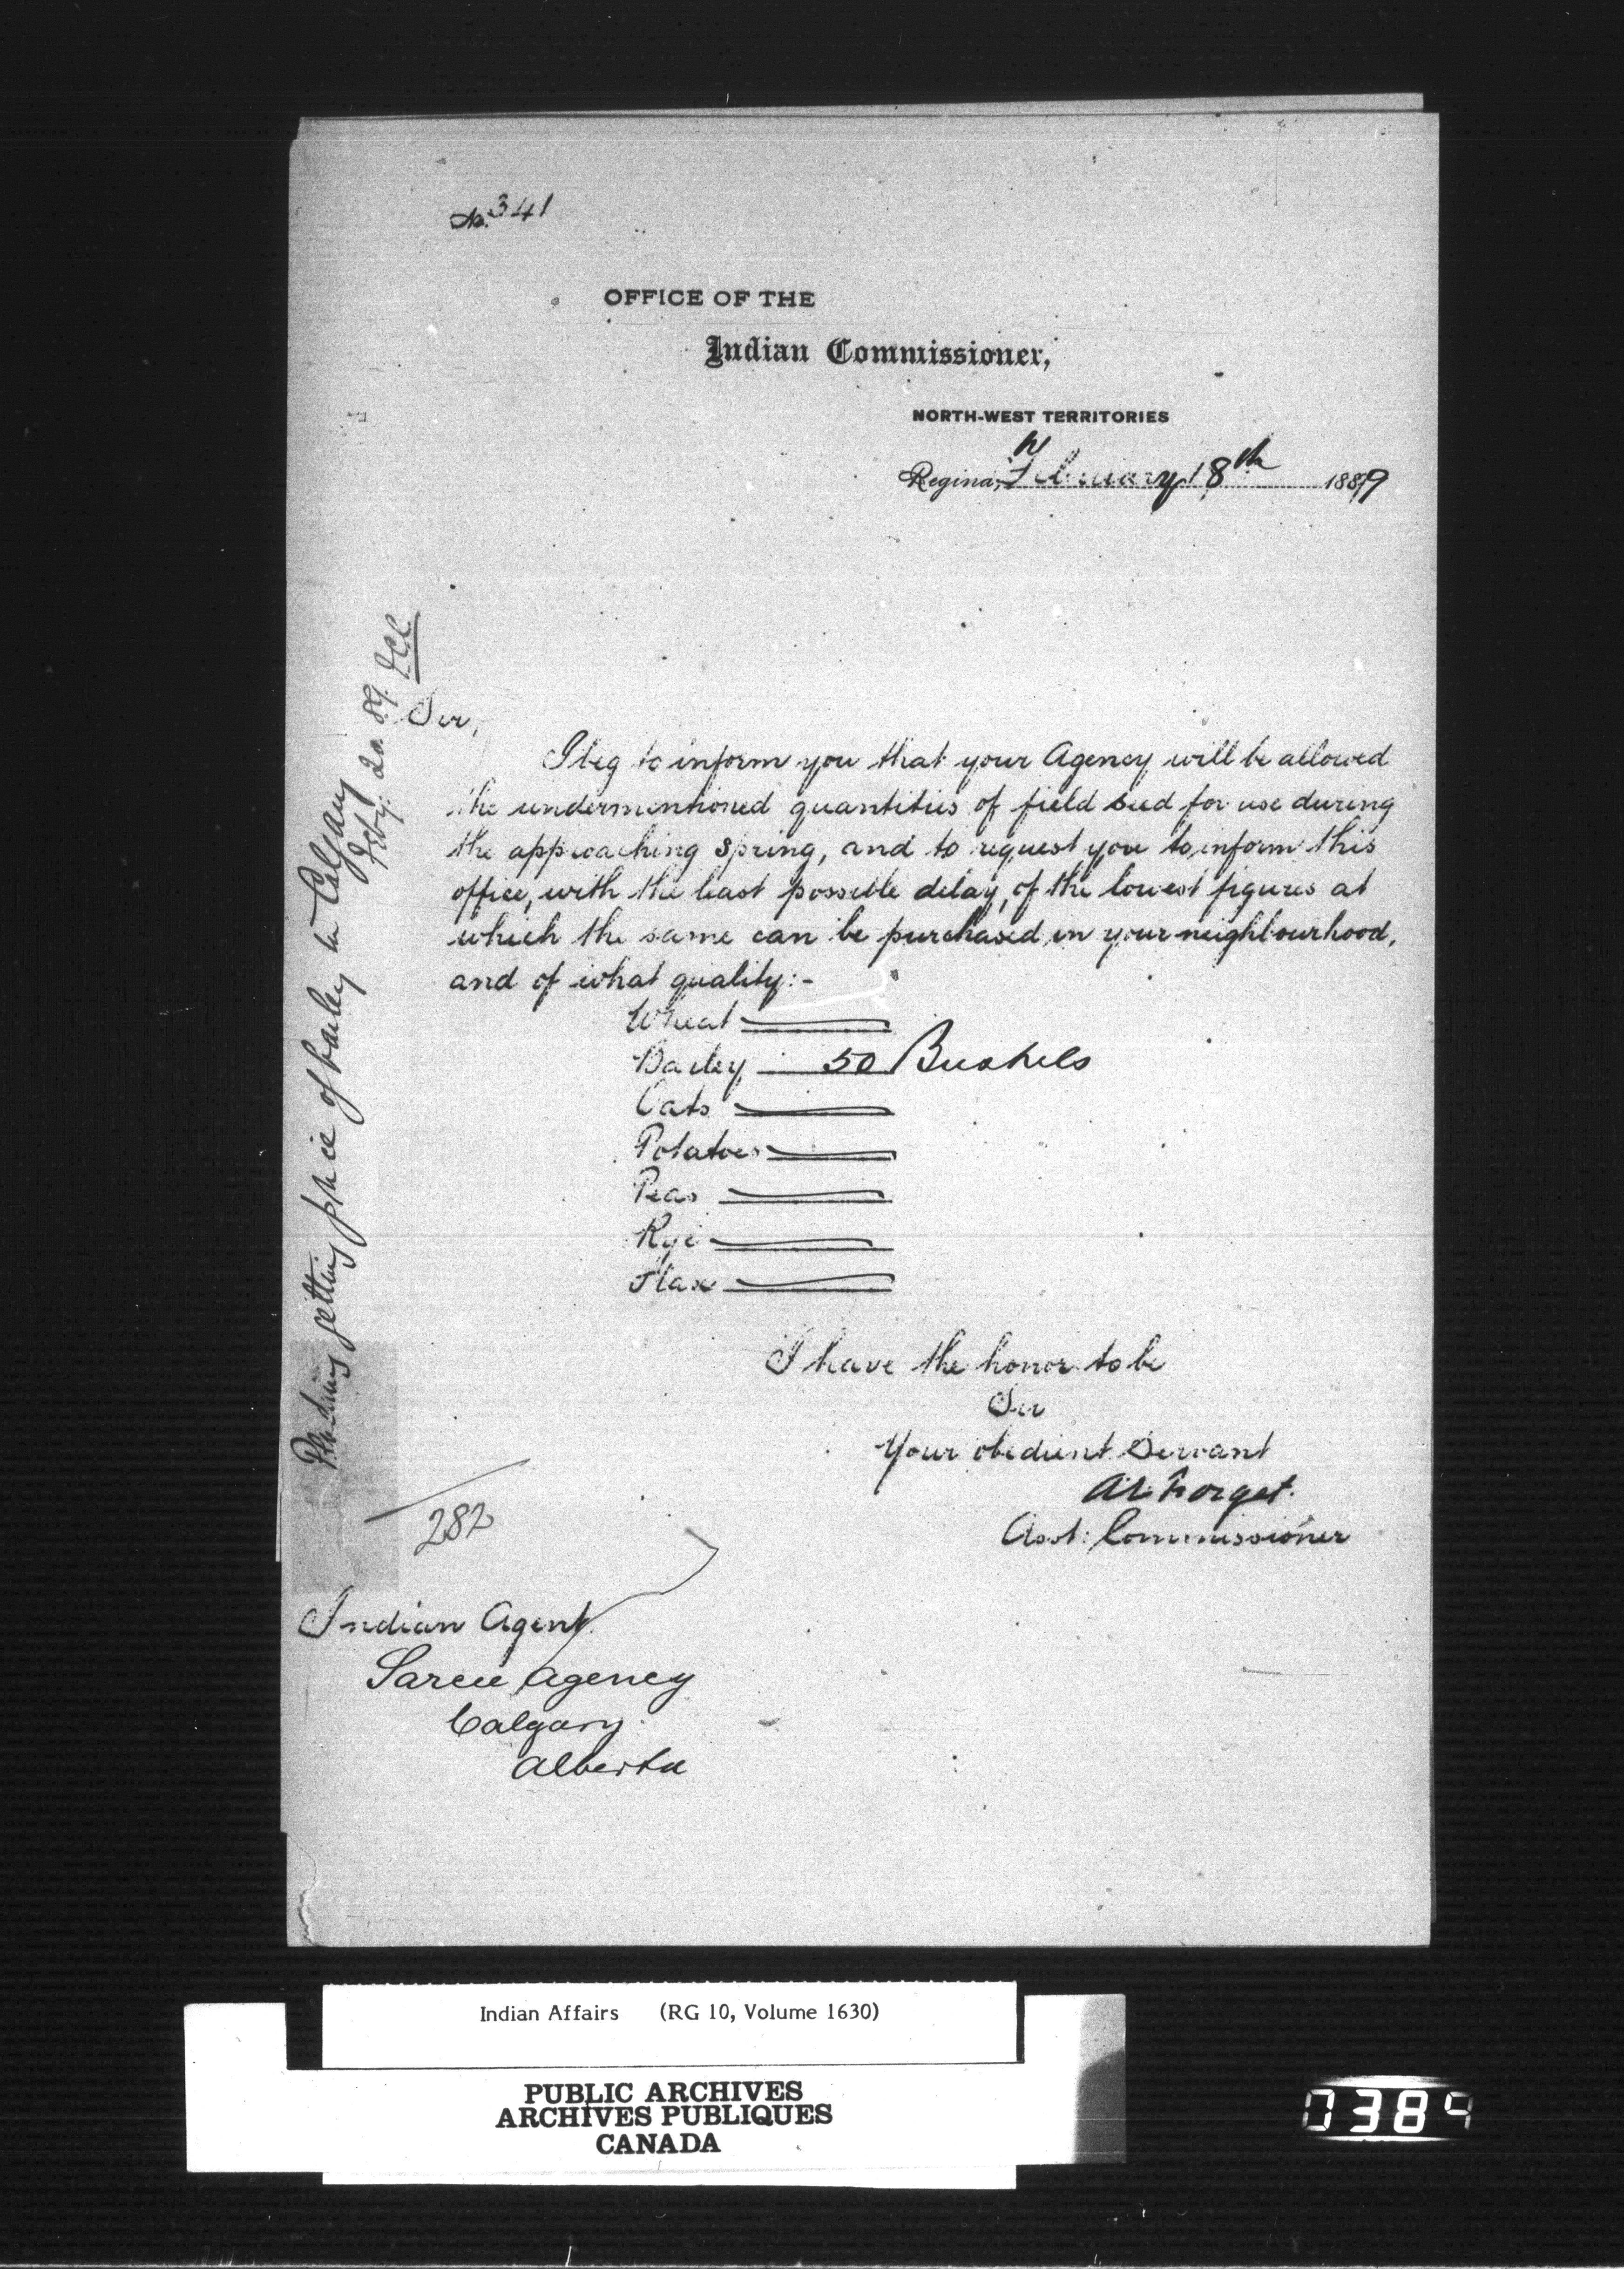 No. 341
OFFICE OF THE
Indian Commissioner,
NORTH-WEST TERRITORIES
Regina, February 18th 1889
Sir,
I beg to inform you that your Agency will be allowed
the undermentioned quantities of field seed for use during
the approaching Spring, and to request you to inform this
office, with the least possible delay, of the lowest figures at
which the same can be purchased in your neighbourhood,
and of what quality:-
Wheat
Barley 50 Bushels
Oats
Potatoes
Peas
Rye
Flax
I have the honor to be
Sir
Your obedient Servant
AE Forget.
Asst: Commissioner
282
Indian Agent
Sarcee Agency
Calgary
Alberta
getting price of barley in Calgary
Feby: 20. 89.
Indian Affairs (RG 10, Volume 1630)
PUBLIC ARCHIVES
ARCHIVES PUBLIQUES
CANADA
0389